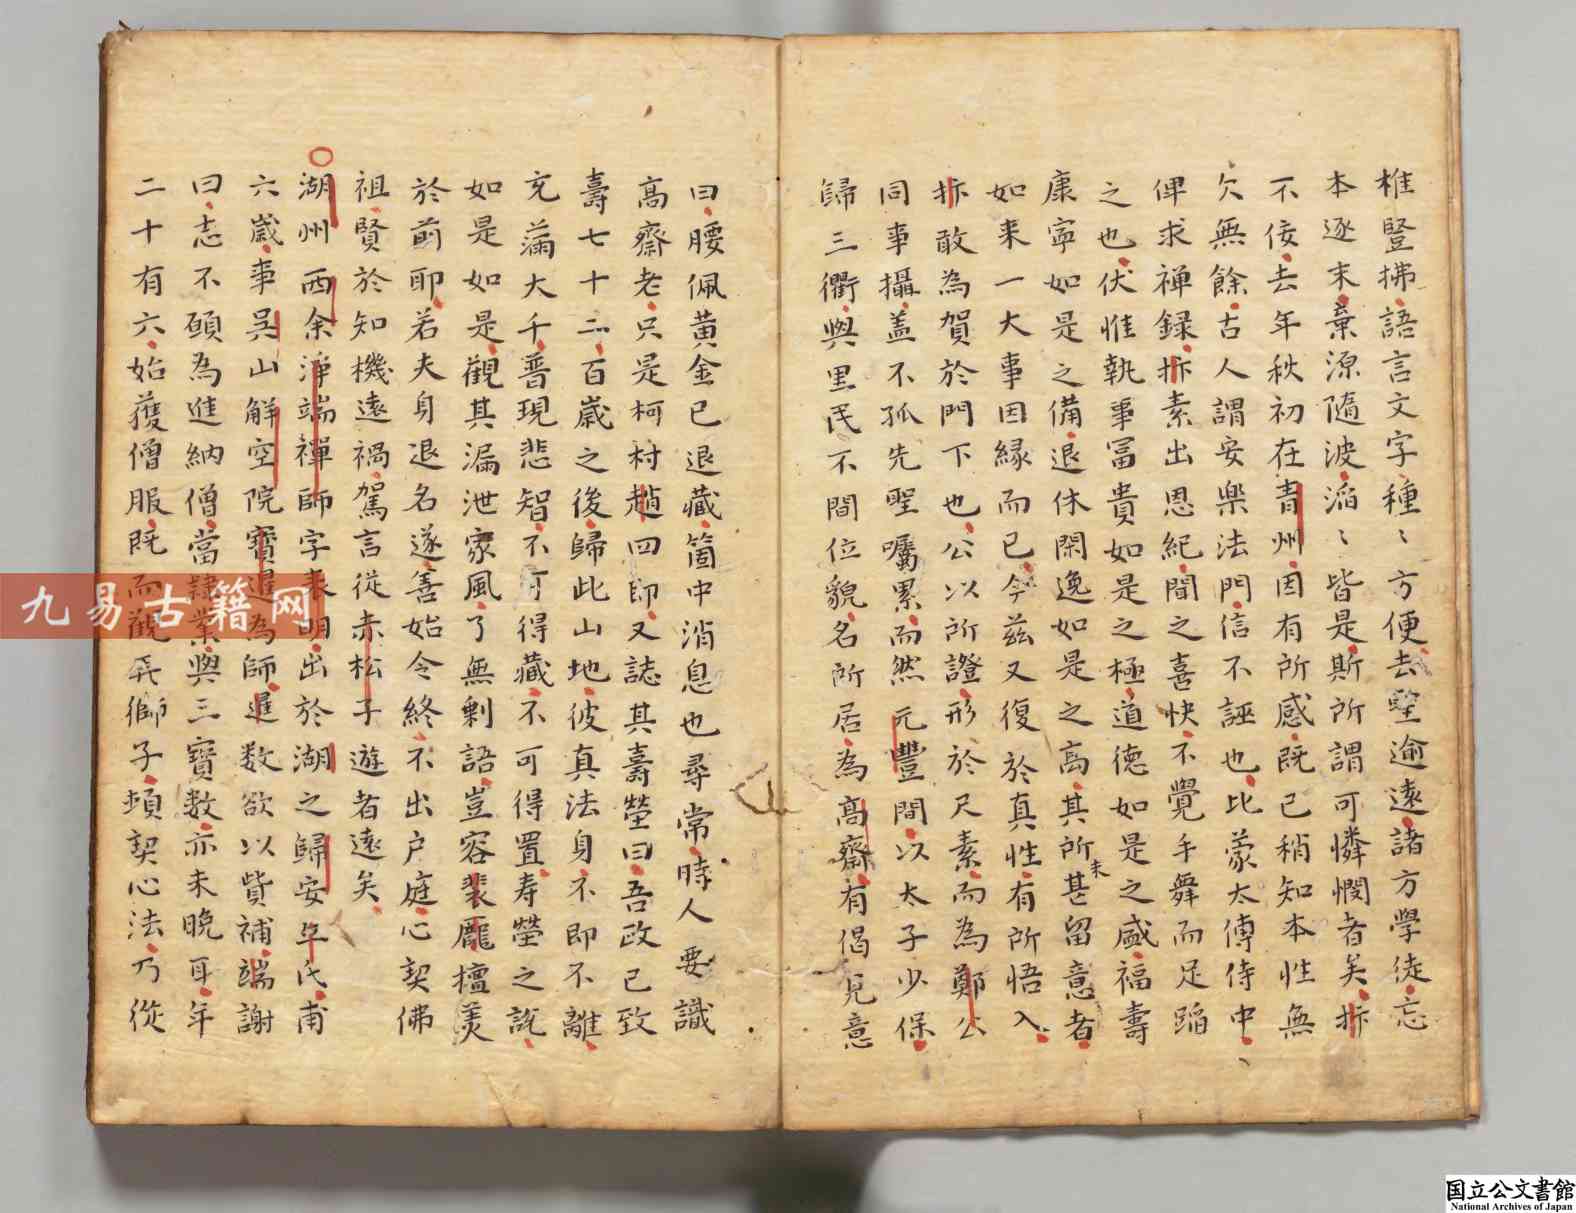 椎豎拂語言文字種〻方便去聖逾遠諸方學徒忘
本逐末棄源隨波滔〻皆是斯所謂可憐憫者矣抃
不佞去年秋初在青州因有所感既已稍知本性無
欠無餘古人謂安樂法門信不誣也比蒙太傅侍中
俾求禪録抃素出恩紀聞之喜快不覺手舞而足蹈
之也伏惟執事冨貴如是之極道德如是之盛福壽
康寧如是之備退休閑逸如是之高其所未甚留意者
如来一大事因縁而已今兹又復於真性有所悟入
抃敢為賀於門下也公以所證形於尺素而為鄭公
同事攝盖不孤先聖囑累而然元豐間以太子少保
歸三衢與里民不間位貌名所居為高齋有偈見意
曰腰佩黄金已退藏箇中消息也尋常時人要識
高齋老只是柯村趙四郎又誌其壽塋曰吾政已致
壽七十二百歲之後歸此山地彼真法身不即不離
充滿大千普現悲智不可得藏不可得置寿塋之說
如是如是觀其漏泄家風了無剩語豈容裴龐擅羙
於前耶若夫身退名遂善始令終不出户庭心契佛
祖賢於知機遠禍駕言從赤松子遊者遠矣
湖州西余淨端禪師字表明出於湖之歸安丘氏甫
六歲事吳山解空院寶暹為師暹数欲以貲補端謝
曰志不願為進納僧當隷業與三寶数亦未晩耳年
二十有六始獲僧服既而觀弄獅子頓契心法乃從
九易古籍网
国立公文書館
National Archives of Japan